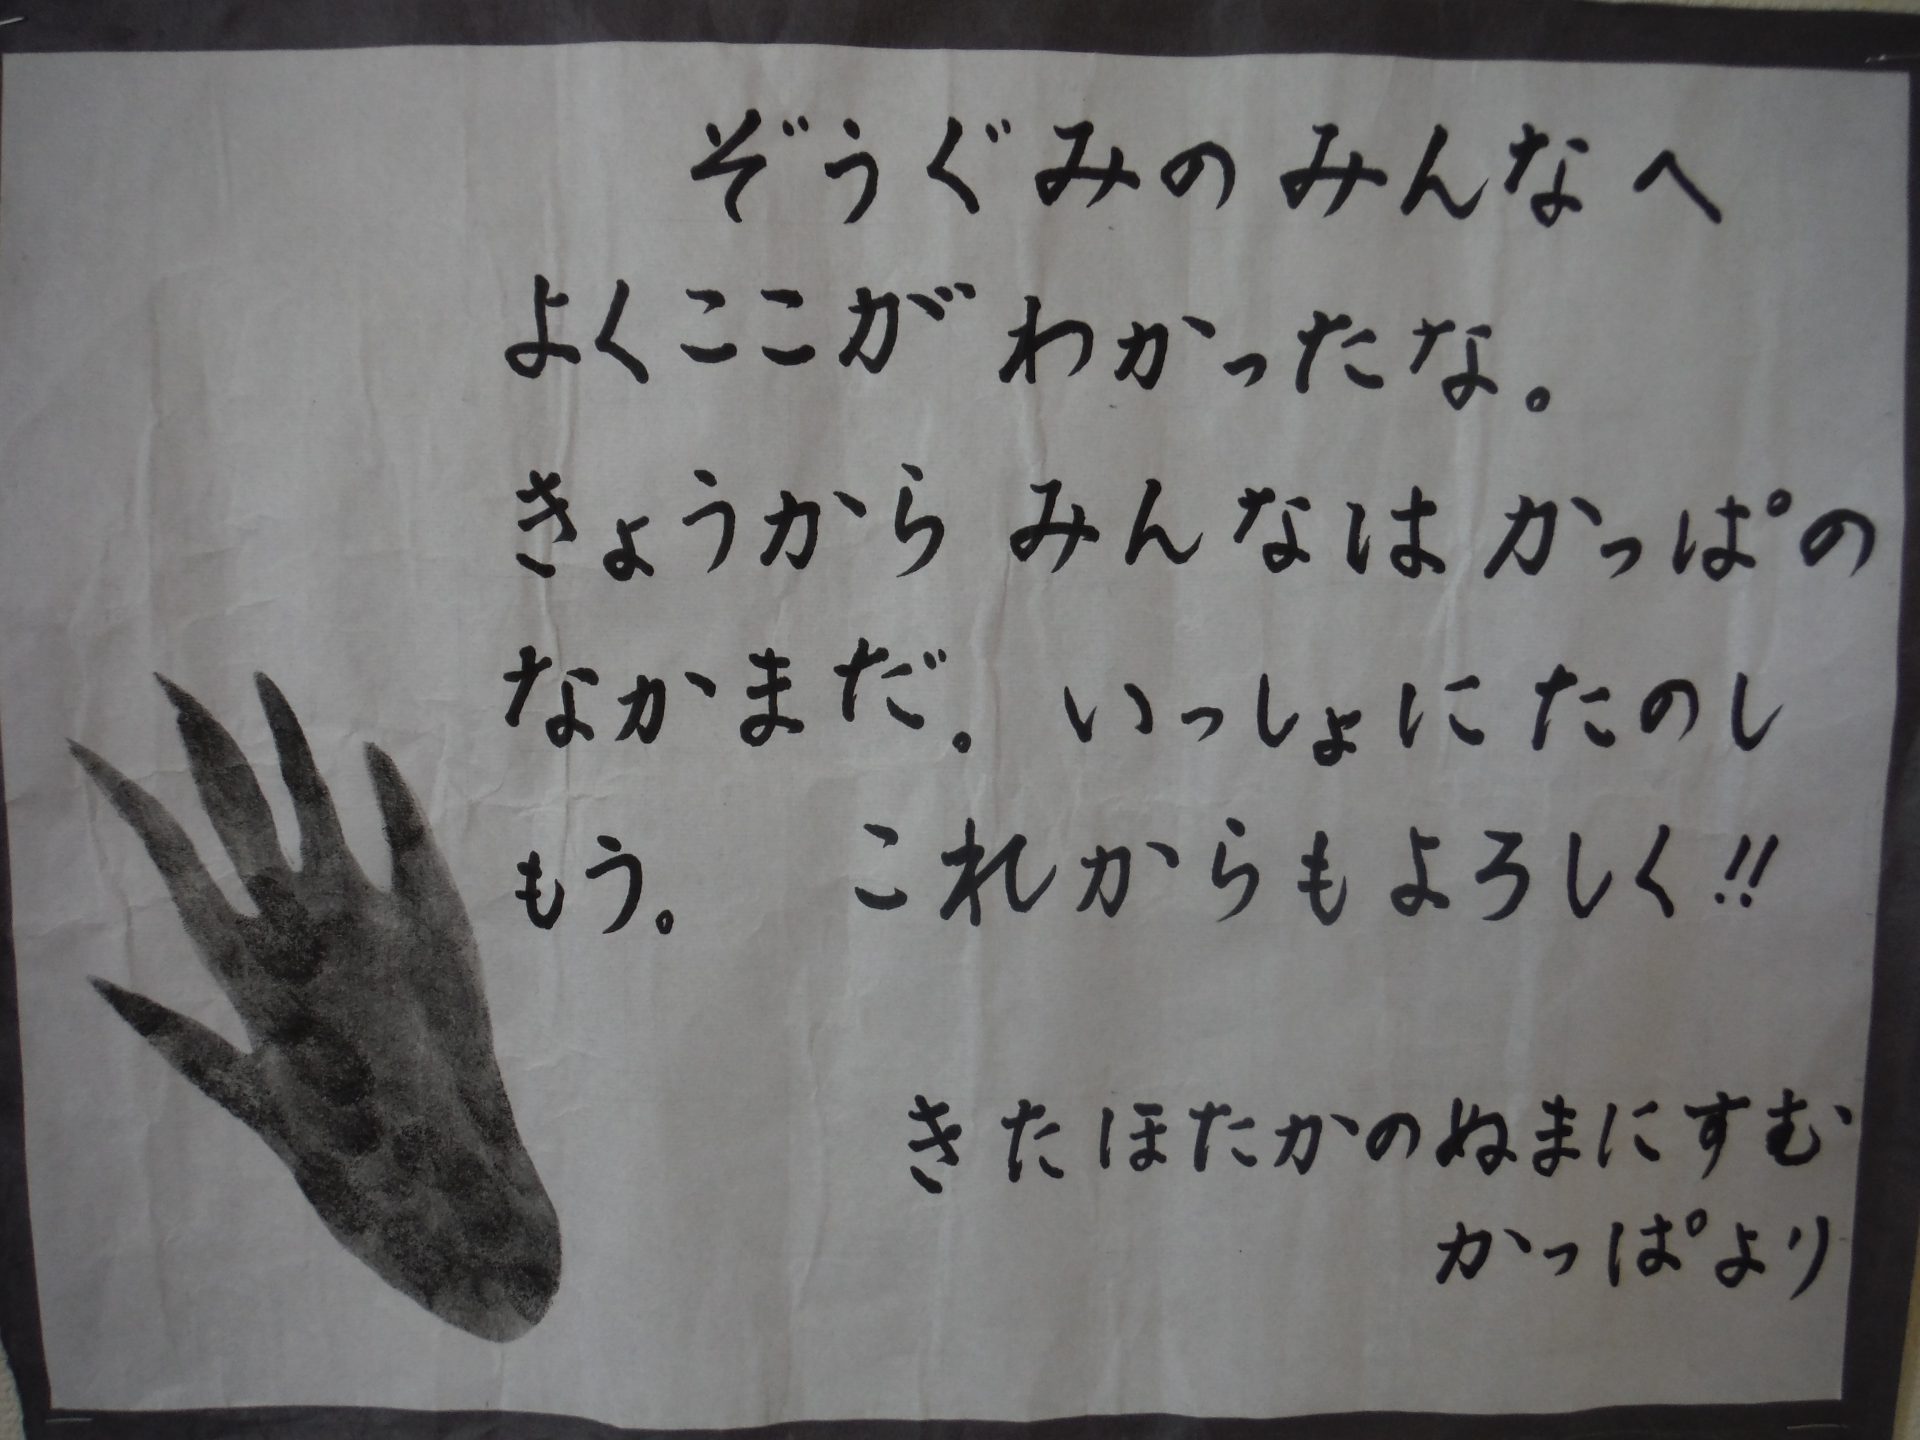 ぞうぐみのみんなへ
よくここがわかったな。
きょうからみんなはかっぱの
なかまだ。いっしょにたのし
もう。 これからもよろしく!!
きたほたかのぬまにすむ
かっぱより